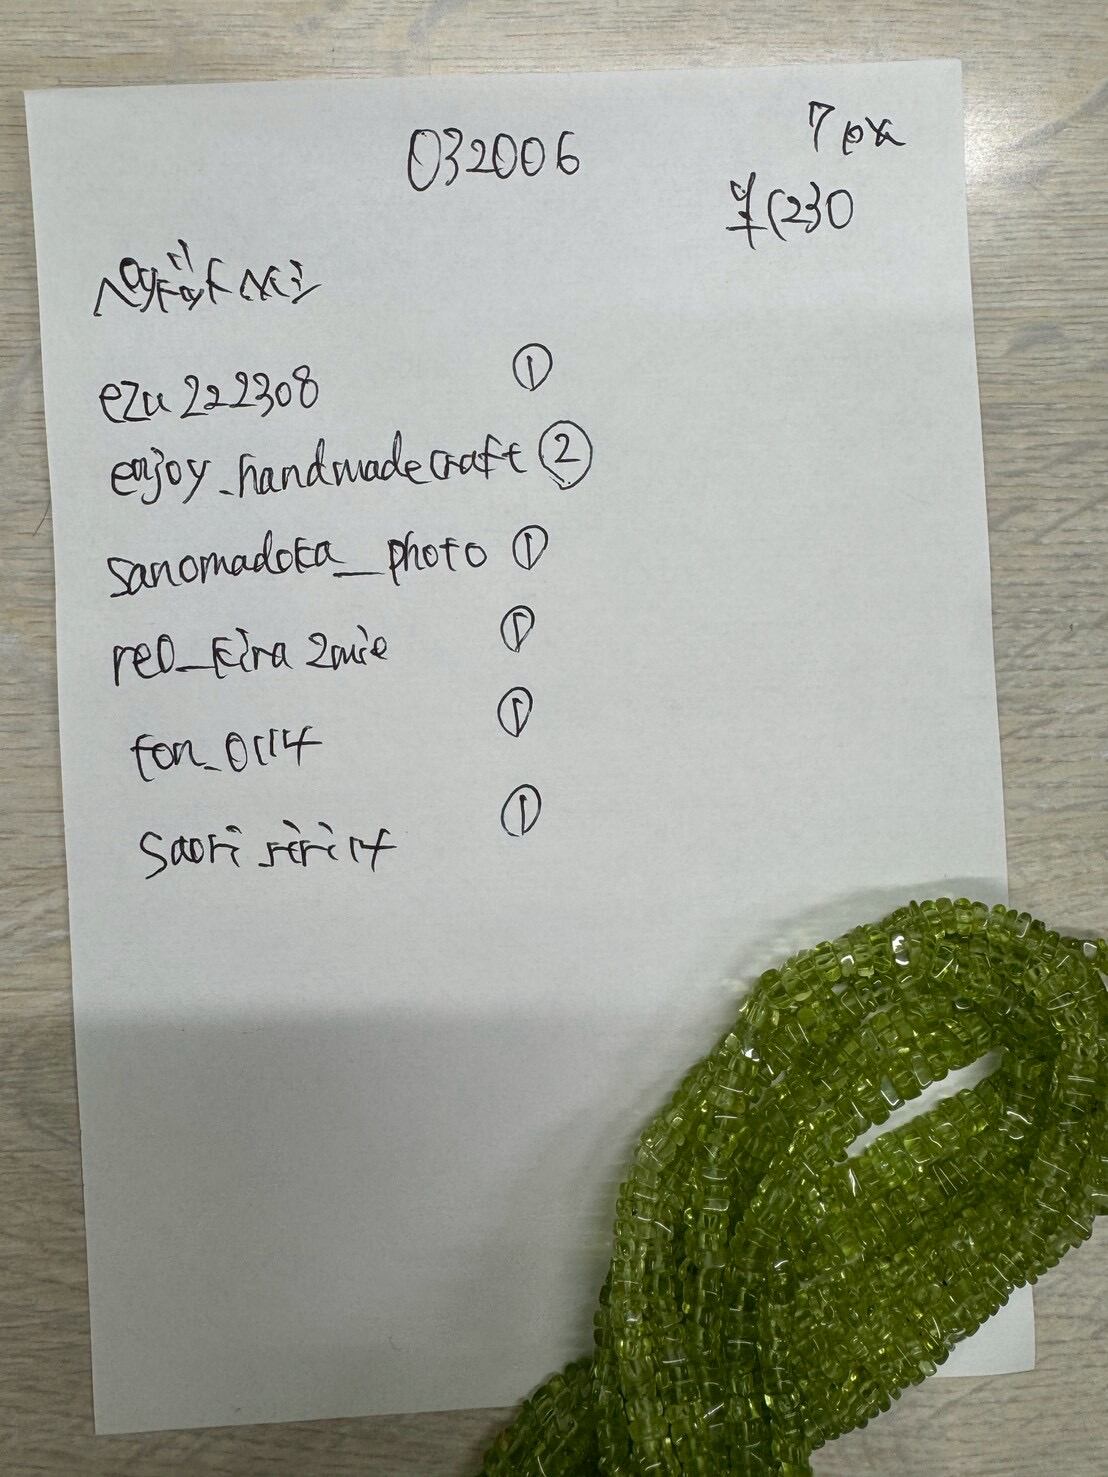 032006
7pcs
¥1230
ezu222308 ①
enjoy_handmadecraft ②
sanomadoka_photo ①
reo_kira2mie ①
ton_0114 ①
Saori_riri14 ①